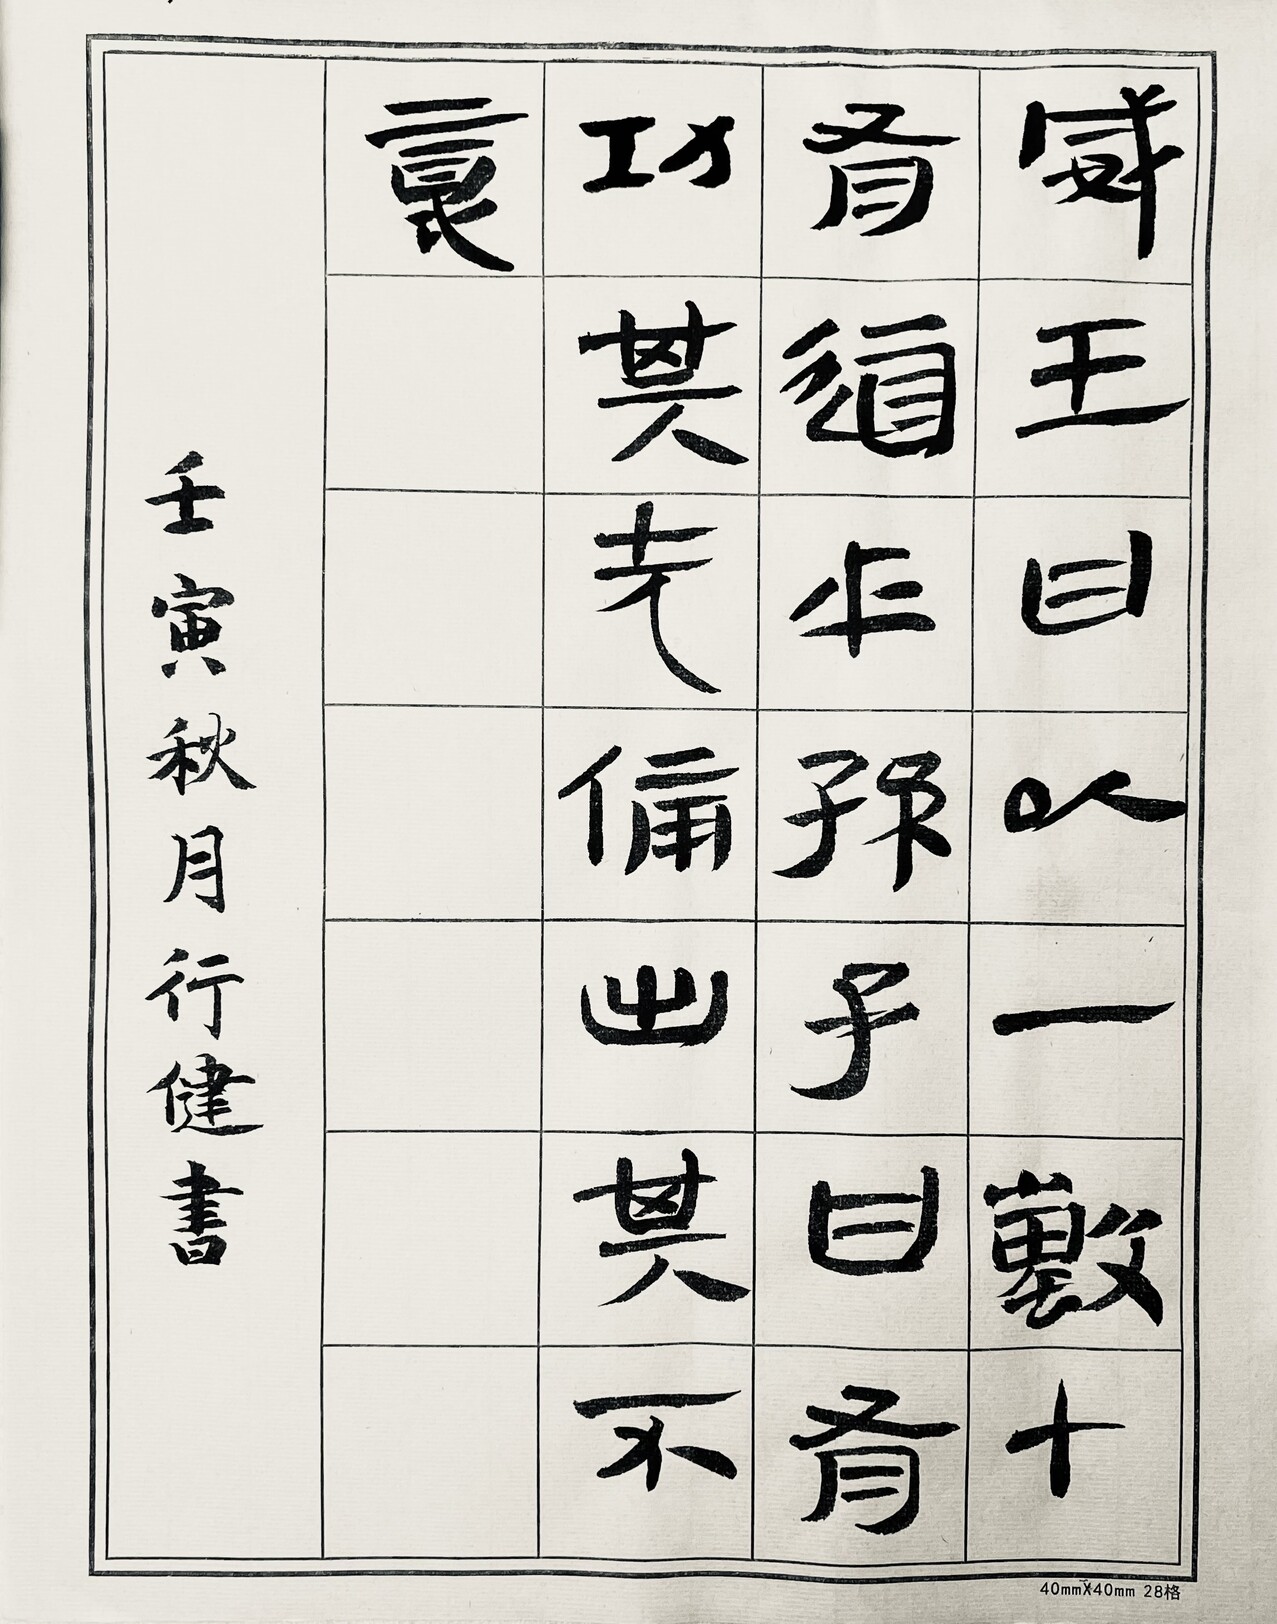 威王曰以一毄十
有道乎孫子曰有
功其无備出其不
意
壬寅秋月行健書
40mmX40mm 28格